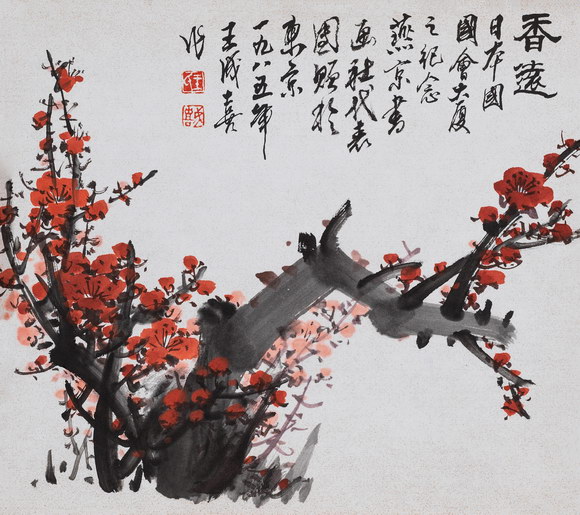 香遠
日本國
國會大厦
之紀念
燕京書
画社代表
團贈於
東京
一九八五年
王成喜
作